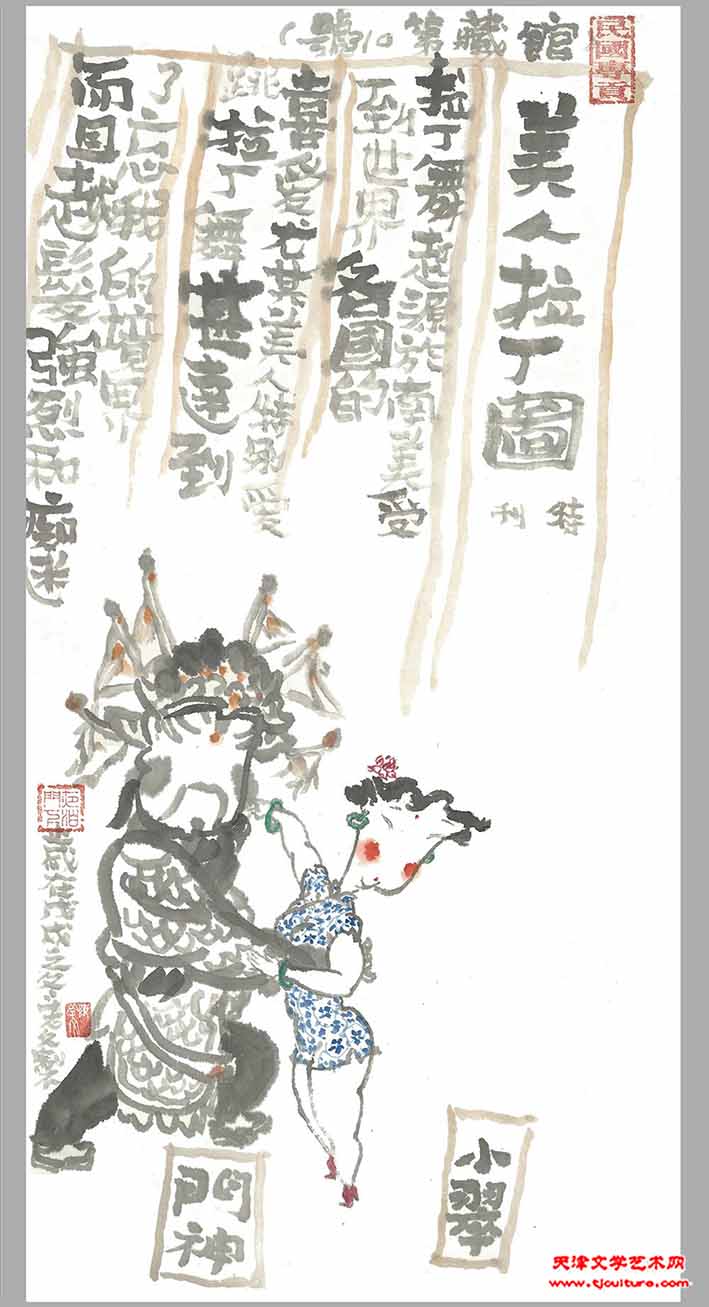 館藏第10號
美人拉丁圖
特刊
拉丁舞起源於南美受
到世界各國的
喜愛尤其美人特別愛
跳拉丁舞甚達到
了忘我的境界
而且越髮強烈和痴迷
歲在戊戌之冬
門神
小翠
天津文学艺术网
www.tjculture.com